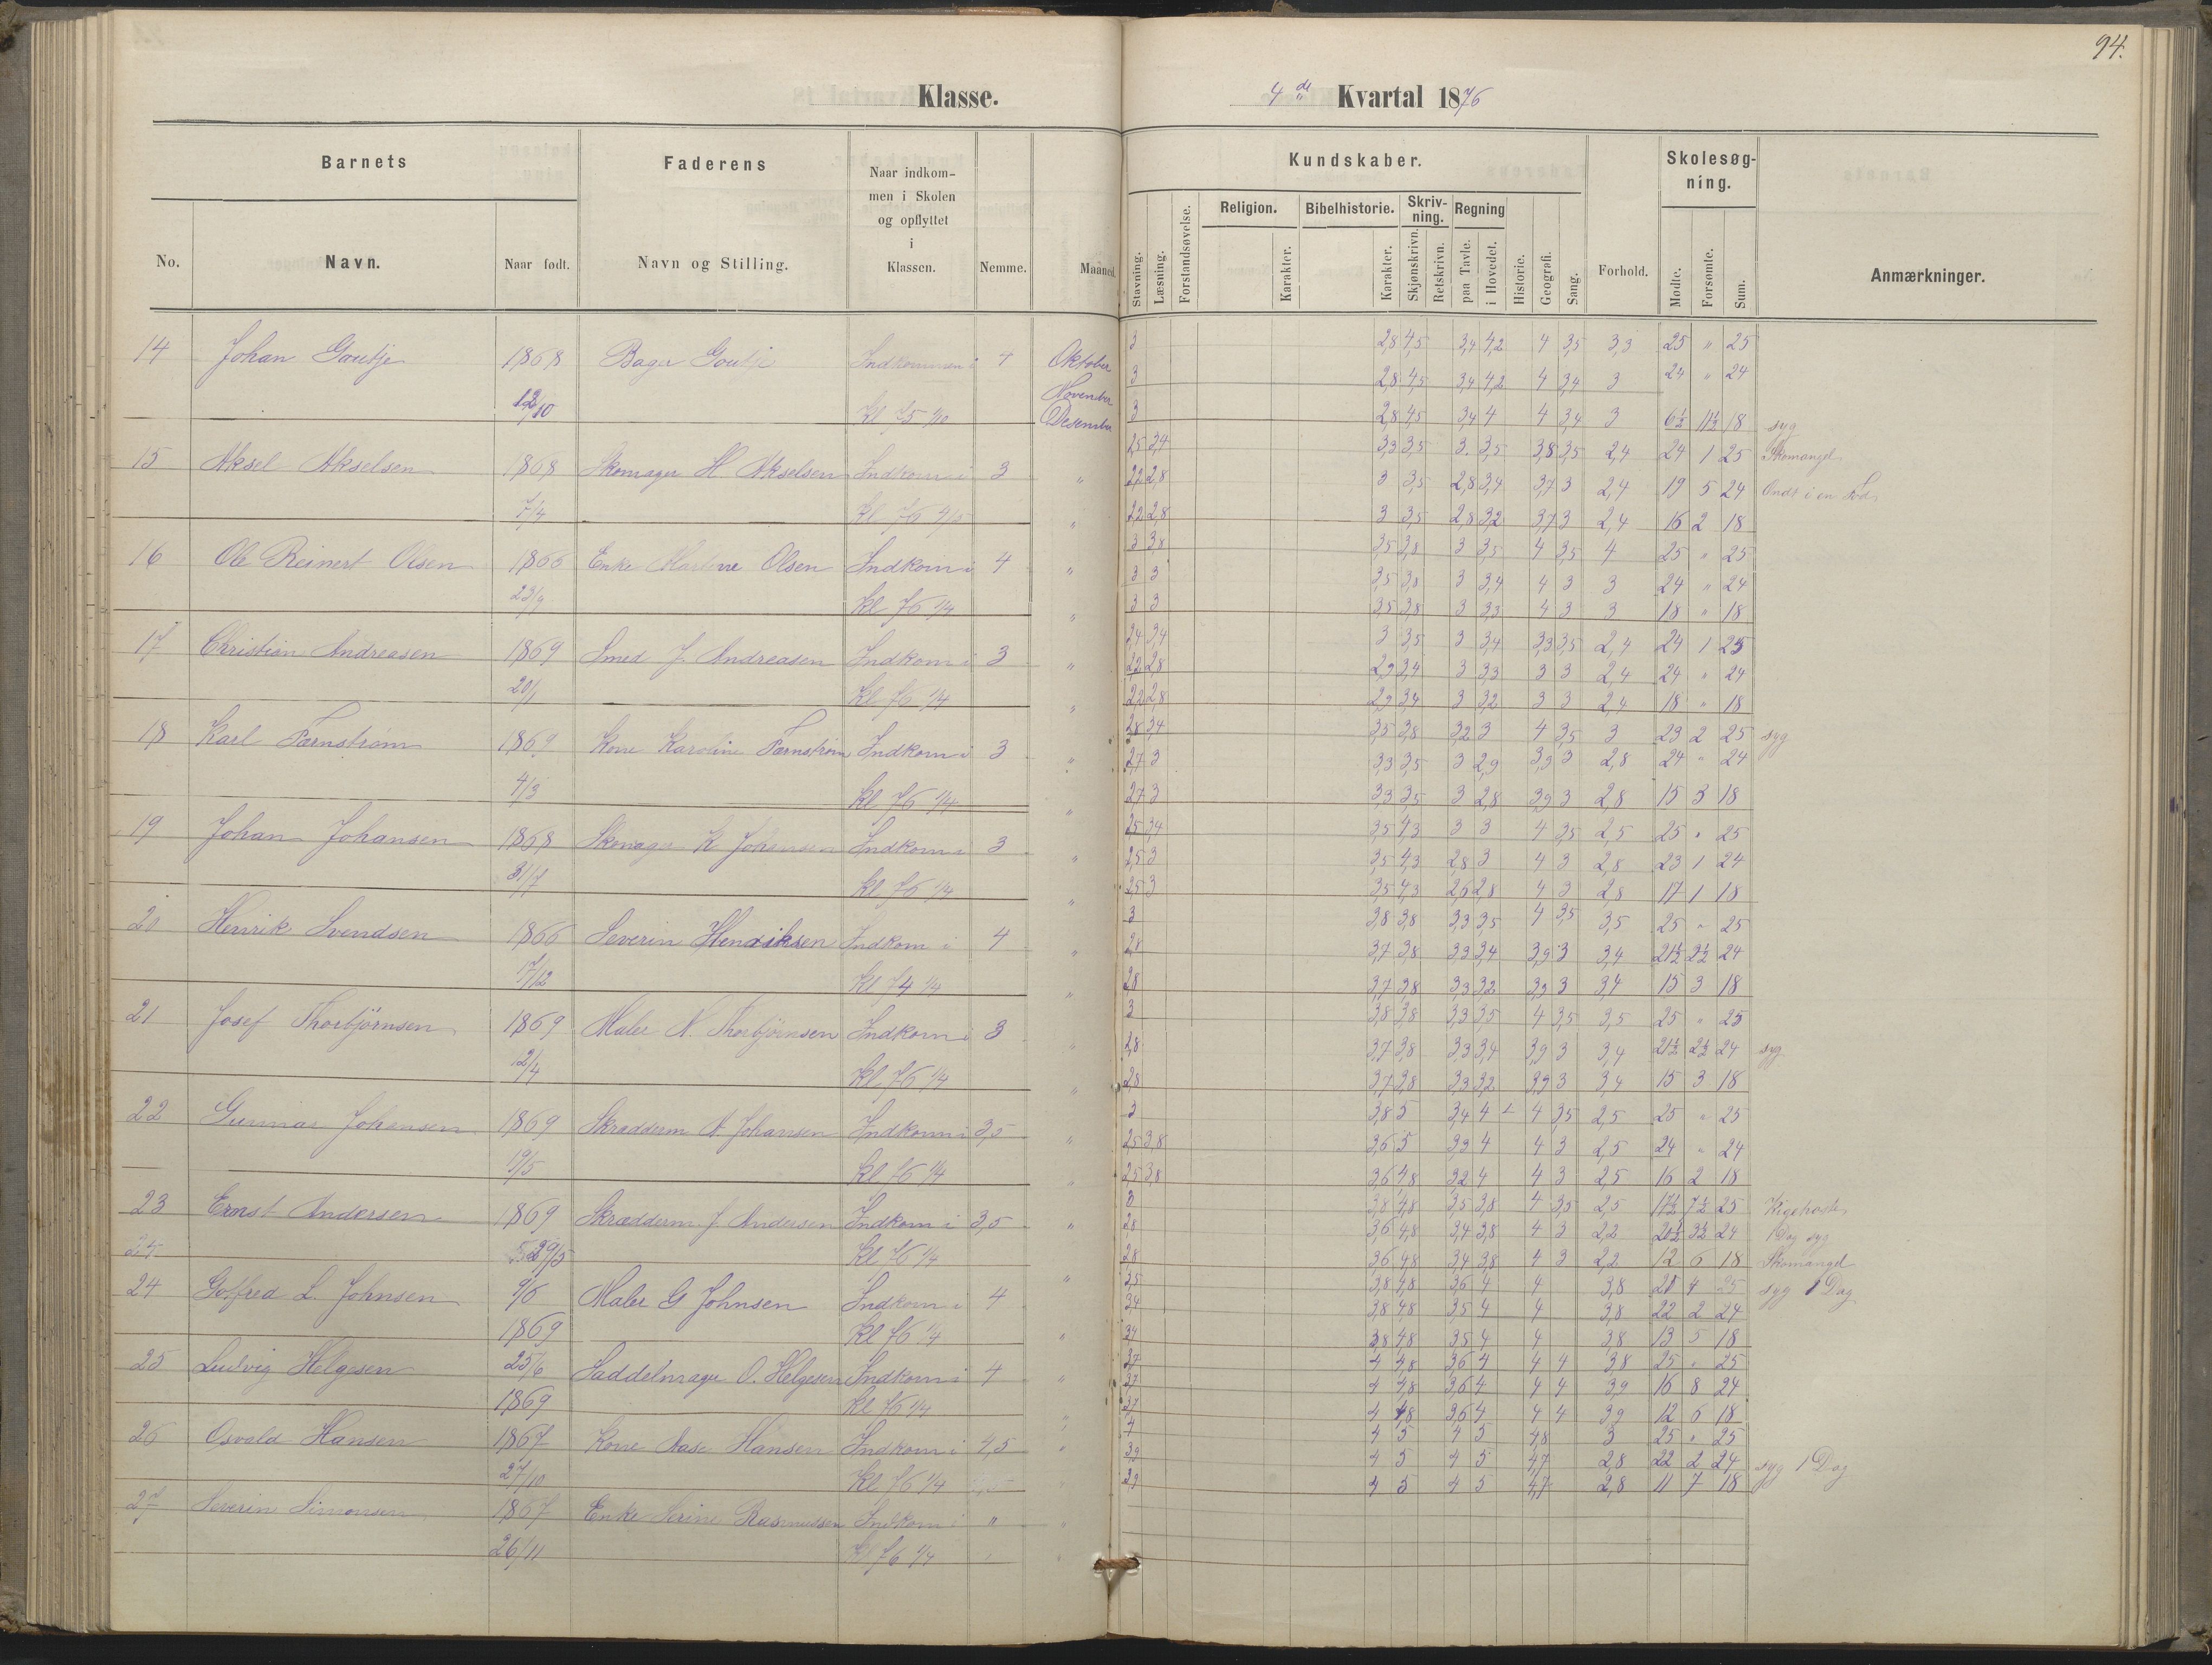 94.
Klasse.
4de Kvartal 1876
Barnets
Faderens
Naar indkom-
men i Skolen
og opflyttet
i
Klassen.
No.
Navn.
Naar født.
Navn og Stilling.
Nemme.
Maaned.
Kundskaber.
Stavning.
Læsning.
Forstandsøvelse.
Religion.
Karakter.
Bibelhistorie.
Karakter.
Skriv-
ning.
Skjønskrivn.
Retskrivn.
Regning
paa Tavle.
i Hovedet.
Historie.
Geografi.
Sang.
Forhold.
Skolesøg-
ning.
Mødte.
Forsømte.
Sum.
Anmærkninger.
14 Johan 1868 Indkommen i 4 Oktober
November
Desember
15 Aksel Akselsen 1868 Skomager H. Akselsen Indkom i 3 "
7/4 Kl 76 "
16 Ole Reinert Olsen 1866 Enke Olsen Indkom i 4 "
Kl 76 1/4 "
17 Christian Andreasen 1869 Smed J. Andreasen Indkom i 3 "
20/1 Kl 76 1/4 "
18 Karl Fernstrøm 1869 Kone Karoline Fernstrøm Indkom i 3 "
4/3 Kl 76 1/4 "
19 Johan Johansen 1868 Skomager K Johansen Indkom i 3 "
31/7 Kl 76 1/4 "
20 Henrik Svendsen 1866 Severin Henriksen Indkom i 4 "
17/12 Kl 74 1/4 "
21 Josef Thorbjørnsen 1869 Maler N. Thorbjørnsen Indkom i 3 "
Kl 76 1/4 "
22 Gunnar Johansen 1869 Skrædderm A. Johansen Indkom i 3,5 "
19/5 Kl 76 1/4 "
23 Ernst Andersen 1869 Skrædderm J. Andersen Indkom i 3,5 "
Kl 76 1/4
24 Gotfred L. Johnsen 9/6 Maler G Johnsen Indkom i 4 "
1869 Kl 76 1/4 "
25 Ludvig Helgesen 25/6 Saddelmager O. Helgesen Indkom i 4 "
1869 Kl 76 1/4 "
26 Osvald Hansen 1867 Kone Aase Hansen Indkom i 4,5 "
27/10 Kl 76 1/4 "
27 Severin Simonsen 1867 Enke Serine Rasmussen Indkom i " "
26/11 Kl 76 1/4
3 2,8 4,5 3,4 4,2 4 3,5 3,3 25 " 25
3 2,8 4,5 3,4 4,2 4 3,4 3 24 " 24
3 2,8 4,5 3,4 4 4 3,4 3 6½ 11½ 18 syg
2,5 3,4 3,3 3,5 3 3,5 3,8 3,5 2,4 24 1 25 Skomangel
2,2 2,8 3 3,5 2,8 3,4 3,7 3 2,4 19 5 24 Ondt i en Fod
2,2 2,8 3 3,5 2,8 3,2 3,7 3 2,4 16 2 18
3 3,8 3,5 3,8 3 3,5 4 3,5 4 25 " 25
3 3 3,5 3,8 3 3,4 4 3 3 24 " 24
3 3 3,5 3,8 3 3,3 4 3 3 18 " 18
2,4 3,4 3 3,5 3 3,4 3,3 3,5 2,4 24 1 25
2,2 2,8 2,9 3,4 3 3,3 3 3 2,4 24 " 24
2,2 2,8 2,9 3,4 3 3,2 3 3 2,4 18 " 18
2,8 3,4 3,5 3,8 3,2 3 4 3,5 3 23 2 25 syg
2,7 3 3,3 3,5 3 2,9 3,9 3 2,8 24 " 24
2,7 3 3,3 3,5 3 2,8 3,9 3 2,8 15 3 18
2,5 3,4 3,5 4,3 3 3 4 3,5 2,5 25 " 25
2,5 3 3,5 4,3 2,8 3 4 3 2,8 23 1 24
2,5 3 3,5 4,3 2,6 2,8 4 3 2,8 17 1 18
3 3,8 3,8 3,3 3,5 4 3,5 3,5 25 " 25
2,8 3,7 3,8 3,3 3,4 3,9 3 3,4 21½ 2½ 24
2,8 3,7 3,8 3,3 3,2 3,9 3 3,4 15 3 18
3 3,8 3,8 3,3 3,5 4 3,5 3,5 25 " 25
2,8 3,7 3,8 3,3 3,4 3,9 3 3,4 21½ 2½ 24 syg
2,8 3,7 3,8 3,3 3,2 3,9 3 3,4 15 3 18
3 3,8 5 3,4 4 4 3,5 2,5 25 " 25
2,5 3,8 3,6 5 3,3 4 4 3 2,5 24 " 24
2,5 3,8 3,6 4,8 3,2 4 4 3 2,5 16 2 18
3 3,8 4,8 3,5 3,8 4 3,5 2,5 17½ 7½ 25 Kighoste
2,8 3,6 4,8 3,4 3,8 4 3 2,2 20½ 3½ 24 1 Dag syg
2,8 3,6 4,8 3,4 3,8 4 3 2,2 12 6 18 Skomangel
3,5 3,8 4,8 3,6 4 4 3,8 4 25 syg 1 Dag
3,4 3,8 4,8 3,5 4 4 3,8 22 2 24
3,4 3,8 4,8 3,5 4 4 3,8 13 5 18
3,7 4 4,8 3,6 4 4 4 3,8 25 " 25
3,7 4 4,8 3,6 4 4 4 3,9 16 8 24
3,7 4 4,8 3,6 4 4 4 3,9 12 6 18
4 4 5 4 5 4,8 3 25 " 25
3,9 4 5 4 5 4,7 2,8 22 2 24 syg 1 Dag
3,9 4 5 4 5 4,7 2,8 11 7 18